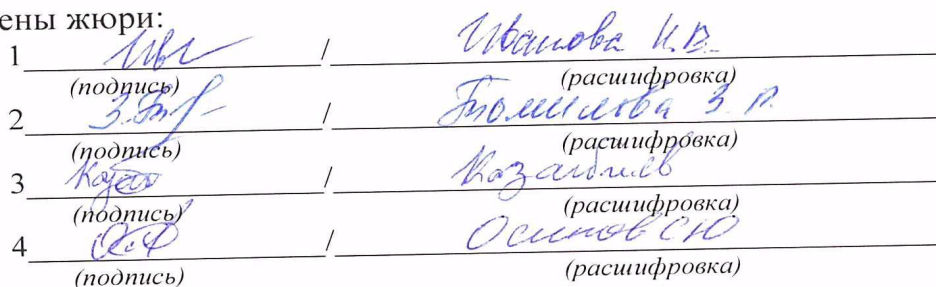 ены жюри:
1 / Иванова И.В.
(подпись) (расшифровка)
2 / З. Р.
(подпись) (расшифровка)
3 /
(подпись) (расшифровка)
4 / Осипов СЮ
(подпись) (расшифровка)